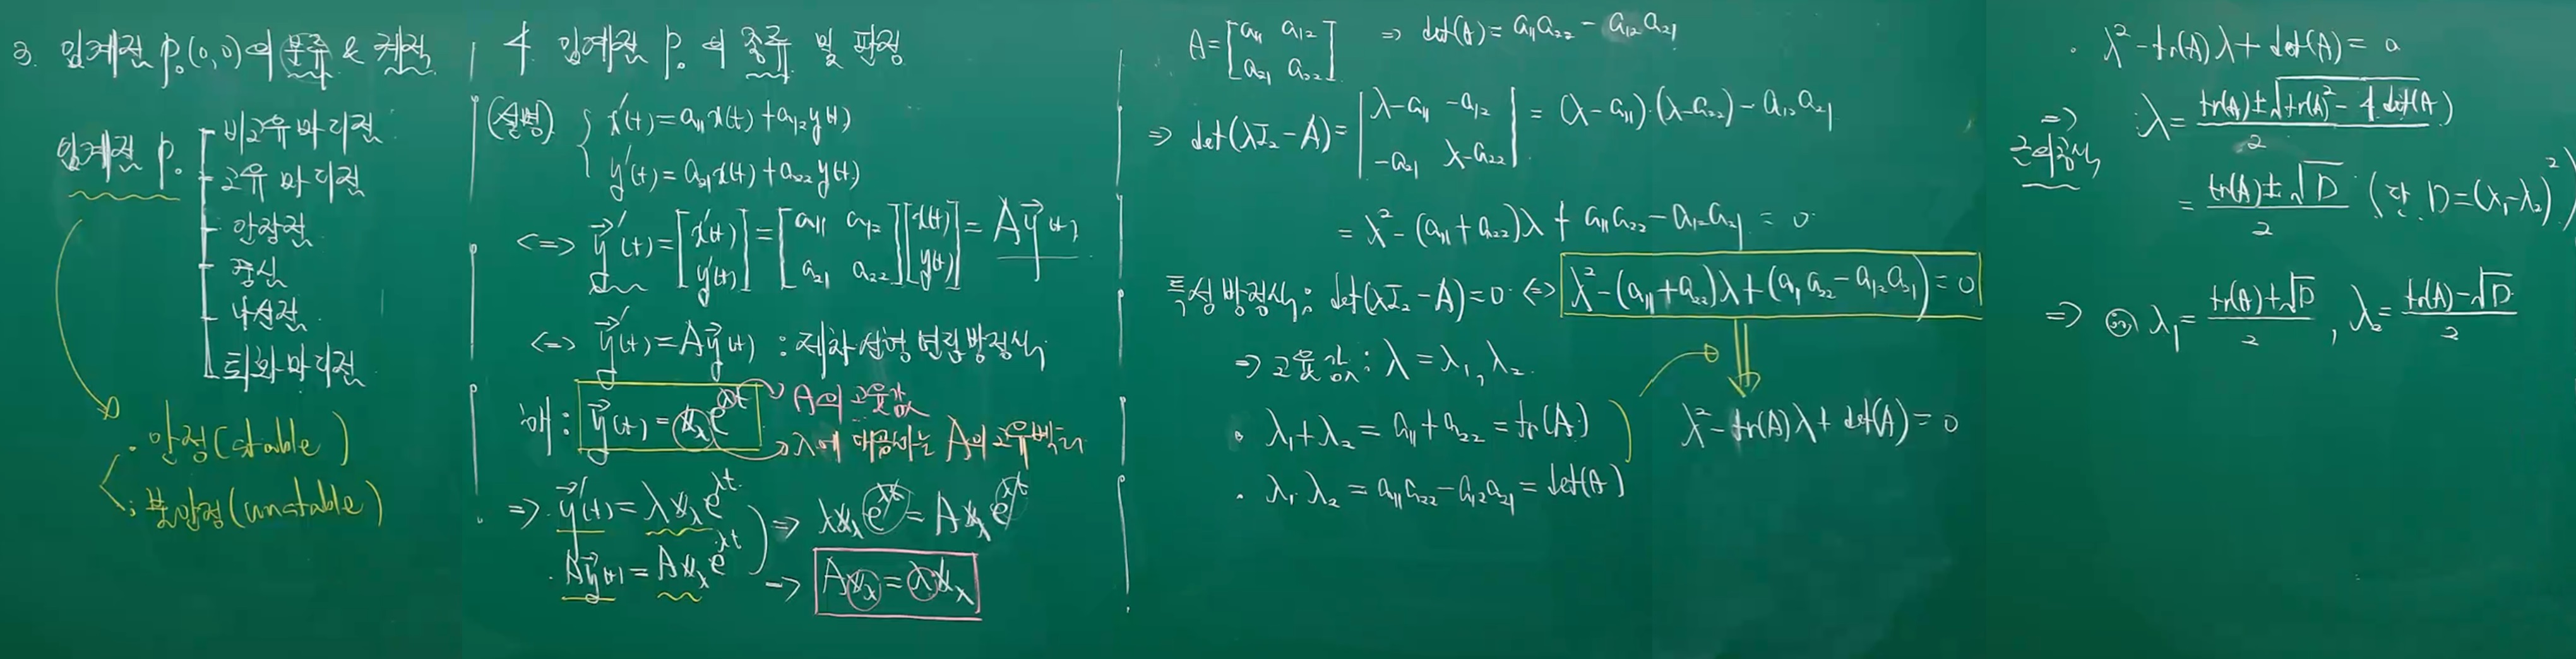 3. 임계점 P₀(0,0)의 분류 & 궤적
임계점 P₀
비고유마디점
고유마디점
안장점
중심
나선점
퇴화마디점
· 안정(stable)
: 불안정(unstable)
4 임계점 P₀의 종류 및 판정
(설명) { x'(t) = a₁₁x(t) + a₁₂y(t)
y'(t) = a₂₁x(t) + a₂₂y(t)
<=> y⃗'(t) = [x'(t) y'(t)] = [a₁₁ a₁₂ a₂₁ a₂₂][x(t) y(t)] = Ay⃗(t)
<=> y⃗'(t) = Ay⃗(t) : 제차선형연립방정식
해 : y⃗(t) = 𝕩_λ e^{λt}
A의 고유값
λ에 대응하는 A의 고유벡터
=> y⃗'(t) = λ𝕩_λ e^{λt}
· Ay⃗(t) = A𝕩_λ e^{λt}
=> λ𝕩_λ e^{λt} = A𝕩_λ e^{λt}
=> A𝕩_λ = λ𝕩_λ
A = [a₁₁ a₁₂ a₂₁ a₂₂] => det(A) = a₁₁a₂₂ - a₁₂a₂₁
=> det(λI₂ - A) = |λ-a₁₁ -a₁₂ -a₂₁ λ-a₂₂| = (λ-a₁₁)·(λ-a₂₂) - a₁₂a₂₁
= λ² - (a₁₁+a₂₂)λ + a₁₁a₂₂ - a₁₂a₂₁ = 0
특성방정식: det(λI₂-A) = 0 <=> λ² - (a₁₁+a₂₂)λ + (a₁₁a₂₂ - a₁₂a₂₁) = 0
=> 고유값: λ = λ₁, λ₂
· λ₁+λ₂ = a₁₁+a₂₂ = tr(A)
· λ₁·λ₂ = a₁₁a₂₂ - a₁₂a₂₁ = det(A)
λ² - tr(A)λ + det(A) = 0
· λ² - tr(A)λ + det(A) = 0
=> 근의공식 λ = (tr(A) ± √(tr(A)² - 4 det(A))) / 2
= (tr(A) ± √D) / 2 (단, D = (λ₁-λ₂)²)
=> λ₁ = (tr(A)+√D) / 2 , λ₂ = (tr(A)-√D) / 2